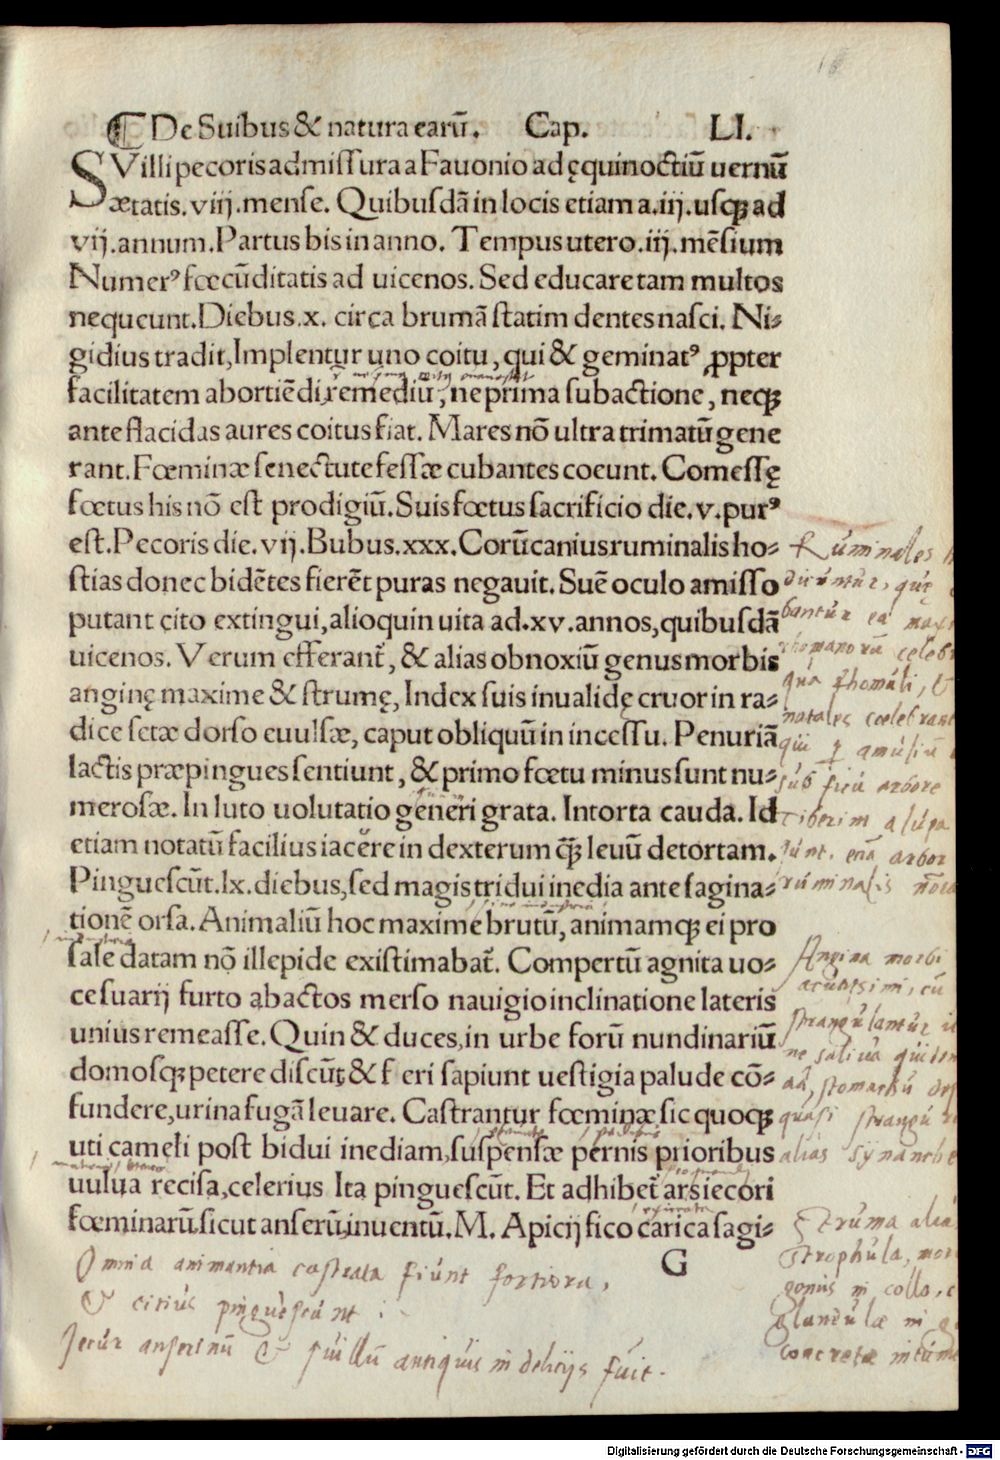 ☾ De Suibus & natura earū. Cap. LI.
SVilli pecoris admiſſura a Fauonio ad ęquinoctiū uernū
ætatis. viij. menſe. Quibuſdā in locis etiam a. iij. uſqꝫ ad
vij. annum. Partus bis in anno. Tempus utero. iij. mēſium
Numerꝰ fœcūditatis ad uicenos. Sed educare tam multos
nequeunt. Diebus. x. circa brumā ſtatim dentes naſci. Ni⸗
gidius tradit, Implentur uno coitu, qui & geminatꝰ ꝓpter
facilitatem abortiēdi, remediū, ne prima ſubactione, neqꝫ
ante flacidas aures coitus fiat. Mares nō ultra trimatū gene
rant. Fœminæ ſenectute feſſæ cubantes coeunt. Comeſſę
fœtus his nō eſt prodigiū. Suis fœtus ſacrificio die. v. purꝰ
eſt. Pecoris die. vij. Bubus. xxx. Corūcanius ruminalis ho⸗
ſtias donec bidētes fierēt puras negauit. Suē oculo amiſſo
putant cito extingui, alioquin uita ad. xv. annos, quibuſdā
uicenos. Verum efferant̃, & alias obnoxiū genus morbis
anginę maxime & ſtrumę, Index ſuis inualidę cruor in ra⸗
dice ſetæ dorſo euulſæ, caput obliquū in inceſſu. Penuriā
lactis præpingues ſentiunt, & primo fœtu minus ſunt nu⸗
meroſæ. In luto uolutatio generi grata. Intorta cauda. Id
etiam notatū facilius iacere in dexterum q̄ꝫ leuū detortam.
Pingueſcūt. lx. diebus, ſed magis tridui inedia ante ſagina⸗
tionē orſa. Animaliū hoc maxime brutū, animamqꝫ ei pro
ſale datam nō illepide exiſtimabat̃. Compertū agnita uo⸗
ce ſuarij furto abactos merſo nauigio inclinatione lateris
unius remeaſſe. Quin & duces, in urbe forū nundinariū
domoſqꝫ petere diſcūt, & f eri ſapiunt ueſtigia palude cō⸗
fundere, urina fugā leuare. Caſtrantur fœminæ ſic quoqꝫ
uti cameli poſt bidui inediam, ſuſpenſæ pernis prioribus
uulua reciſa, celerius Ita pingueſcūt. Et adhibet̃ ars iecori
fœminarū, ſicut anſerū, inuentū. M. Apicij fico carica ſagi⸗
G
Ruminales
dicuntur, quę
rhomanorū celebr
qua Rhomuli, &
natales celebrant
sub ficu arbore
Tiberim a lupa
arbor
ruminalis
Angina morbi
acutissimi, cū
strangulantur
ne saliua quidem
ad stomachū
quasi
alias synanche
Struma alia
Strophula,
in collo,
Glandulæ in
concretæ
Omnia animantia castrata fiunt fortiora,
& citius pinguescunt
Jecur anserinū & suillū antiquis in delicijs fuit.
Digitalisierung gefördert durch die Deutsche Forschungsgemeinschaft - DFG